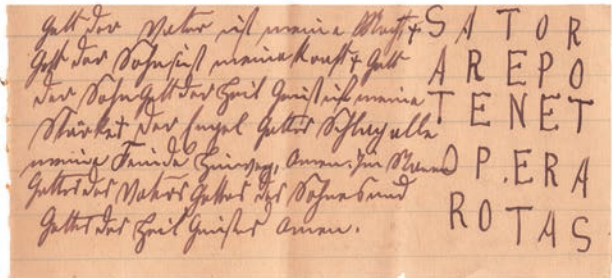 Gott der Vater ist meine Macht +
Gott der Sohn ist meine Kraft + Gott
der Sohn Gott der Heil Geist ist meine
Stärke + der Engel Gottes Schlag alle
meine Feinde hinweg, Amen. Im Namen
Gottes des Vaters Gottes des Sohnes und
Gottes des Heil Geistes Amen.
S A T O R
A R E P O
T E N E T
O P . E R A
R O T A S